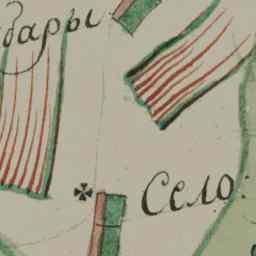 бары
Село: